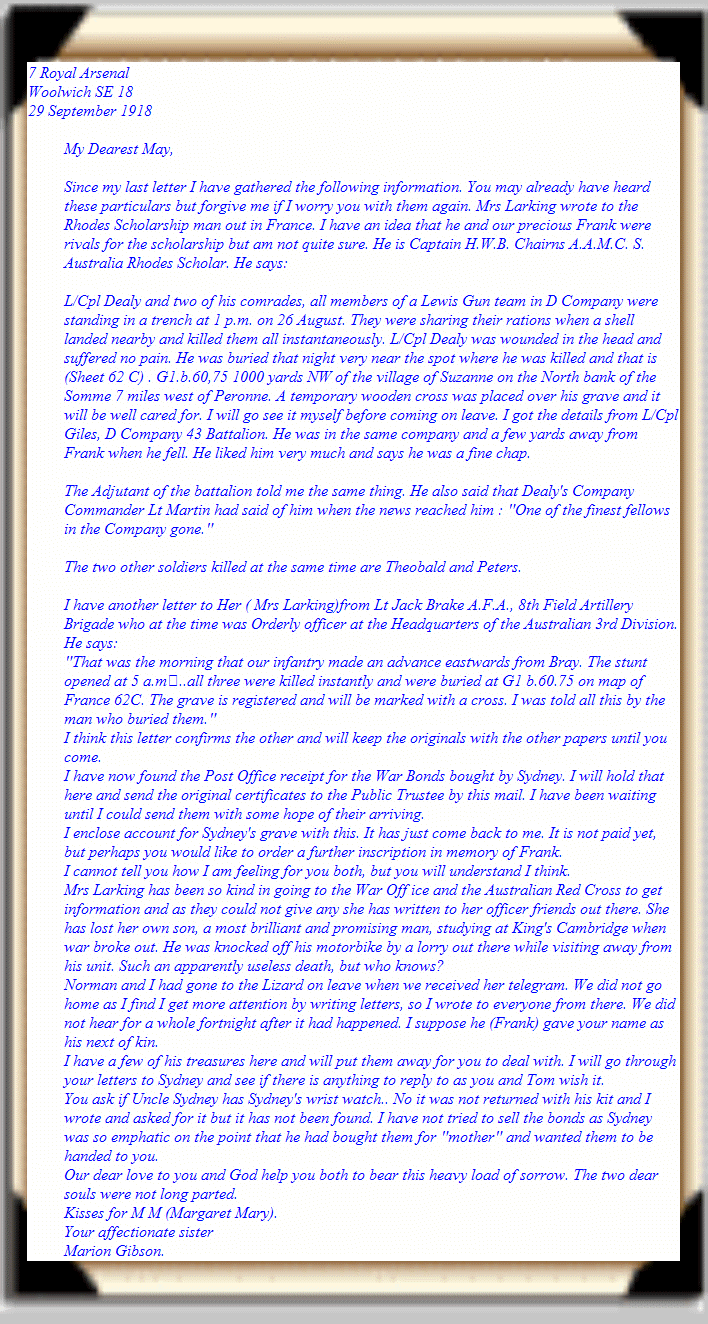 7 Royal Arsenal
Woolwich SE 18
29 September 1918
My Dearest May,
Since my last letter I have gathered the following information. You may already have heard
these particulars but forgive me if I worry you with them again. Mrs Larking wrote to the
Rhodes Scholarship man out in France. I have an idea that he and our precious Frank were
rivals for the scholarship but am not quite sure. He is Captain H.W.B. Chairns A.A.M.C. S.
Australia Rhodes Scholar. He says:
L/Cpl Dealy and two of his comrades, all members of a Lewis Gun team in D Company were
standing in a trench at 1 p.m. on 26 August. They were sharing their rations when a shell
landed nearby and killed them all instantaneously. L/Cpl Dealy was wounded in the head and
suffered no pain. He was buried that night very near the spot where he was killed and that is
(Sheet 62 C) . G1.b.60,75 1000 yards NW of the village of Suzanne on the North bank of the
Somme 7 miles west of Peronne. A temporary wooden cross was placed over his grave and it
will be well cared for. I will go see it myself before coming on leave. I got the details from L/Cpl
Giles, D Company 43 Battalion. He was in the same company and a few yards away from
Frank when he fell. He liked him very much and says he was a fine chap.
The Adjutant of the battalion told me the same thing. He also said that Dealy's Company
Commander Lt Martin had said of him when the news reached him : "One of the finest fellows
in the Company gone."
The two other soldiers killed at the same time are Theobald and Peters.
I have another letter to Her ( Mrs Larking)from Lt Jack Brake A.F.A., 8th Field Artillery
Brigade who at the time was Orderly officer at the Headquarters of the Australian 3rd Division.
He says:
"That was the morning that our infantry made an advance eastwards from Bray. The stunt
opened at 5 a.m▯..all three were killed instantly and were buried at G1 b.60.75 on map of
France 62C. The grave is registered and will be marked with a cross. I was told all this by the
man who buried them."
I think this letter confirms the other and will keep the originals with the other papers until you
come.
I have now found the Post Office receipt for the War Bonds bought by Sydney. I will hold that
here and send the original certificates to the Public Trustee by this mail. I have been waiting
until I could send them with some hope of their arriving.
I enclose account for Sydney's grave with this. It has just come back to me. It is not paid yet,
but perhaps you would like to order a further inscription in memory of Frank.
I cannot tell you how I am feeling for you both, but you will understand I think.
Mrs Larking has been so kind in going to the War Off ice and the Australian Red Cross to get
information and as they could not give any she has written to her officer friends out there. She
has lost her own son, a most brilliant and promising man, studying at King's Cambridge when
war broke out. He was knocked off his motorbike by a lorry out there while visiting away from
his unit. Such an apparently useless death, but who knows?
Norman and I had gone to the Lizard on leave when we received her telegram. We did not go
home as I find I get more attention by writing letters, so I wrote to everyone from there. We did
not hear for a whole fortnight after it had happened. I suppose he (Frank) gave your name as
his next of kin.
I have a few of his treasures here and will put them away for you to deal with. I will go through
your letters to Sydney and see if there is anything to reply to as you and Tom wish it.
You ask if Uncle Sydney has Sydney's wrist watch.. No it was not returned with his kit and I
wrote and asked for it but it has not been found. I have not tried to sell the bonds as Sydney
was so emphatic on the point that he had bought them for "mother" and wanted them to be
handed to you.
Our dear love to you and God help you both to bear this heavy load of sorrow. The two dear
souls were not long parted.
Kisses for M M (Margaret Mary).
Your affectionate sister
Marion Gibson.